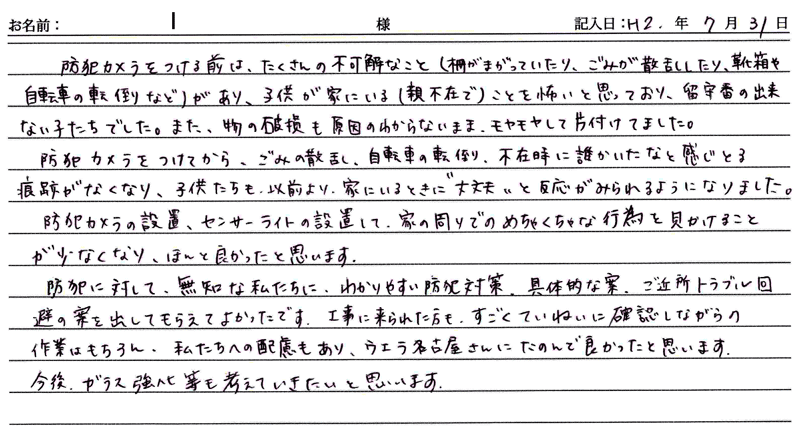 お名前： I 様 記入日：H2. 年 7 月 31 日
防犯カメラをつける前は、たくさんの不可解なこと(柵がまがっていたり、ごみが散乱したり、靴箱や
自転車の転倒など)があり、子供が家にいる(親不在で)ことを怖いと思っており、留守番の出来
ない子たちでした。また、物の破損も原因のわからないまま、モヤモヤして片付けてました。
防犯カメラをつけてから、ごみの散乱、自転車の転倒、不在時に誰かいたなと感じとる
痕跡がなくなり、子供たちも、以前より、家にいるときに"大丈夫"と反応がみられるようになりました。
防犯カメラの設置、センサーライトの設置して、家の周りでのめちゃくちゃな行為を見かけること
が少なくなり、ほんと良かったと思います。
防犯に対して、無知な私たちに、わかりやすい防犯対策、具体的な案、ご近所トラブル回
避の案を出してもらえてよかったです。工事に来られた方も、すごくていねいに確認しながらの
作業はもちろん、私たちへの配慮もあり、ウエラ名古屋さんにたのんで良かったと思います。
今後、ガラス強化等も考えていきたいと思います。